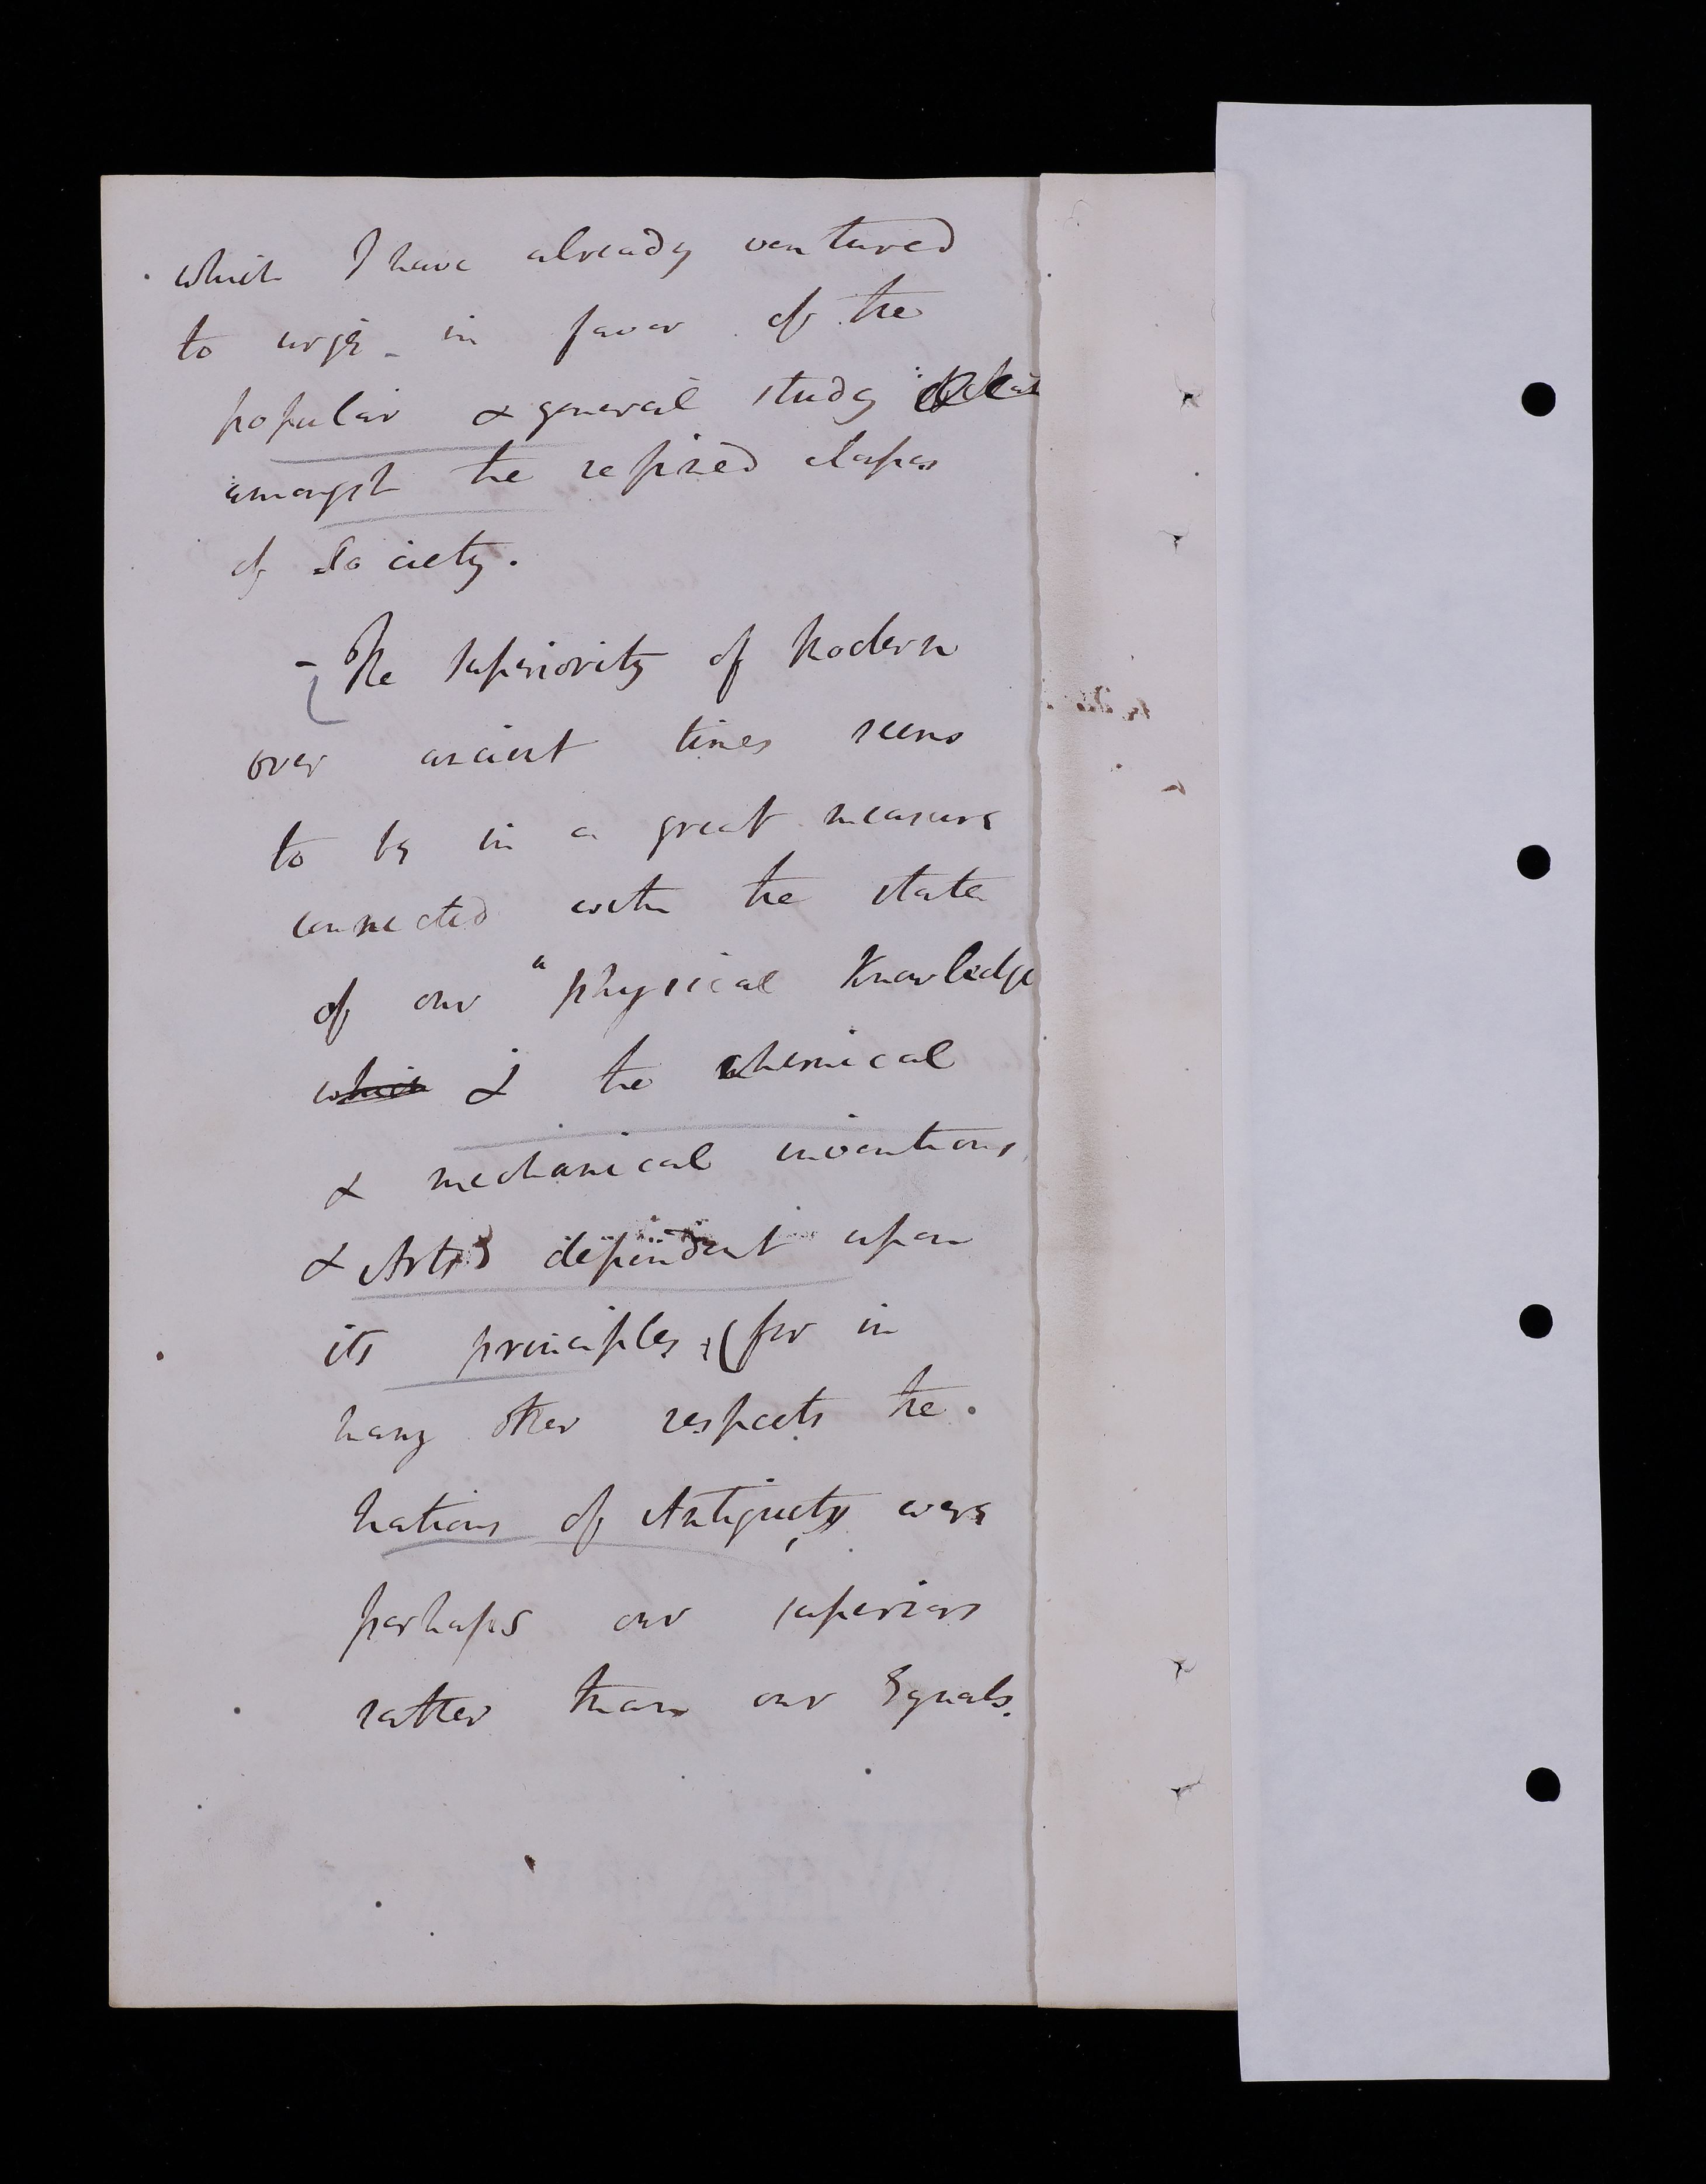 which I have already ventured
to urge in favor of the
popular & general study
amongst the refined classes
of Society.
- The superiority of Modern
over ancient times seems
to be in a great measure
connected with the state
of our "physical Knowledge
which & the chemical
& mechanical inventions
& Arts dependent upon
its principles; (for in
many other respects the
nations of Antiquity were
perhaps our superiors
rather than our Equals.